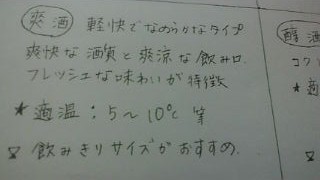 爽酒 軽快でなめらかなタイプ
爽快な酒質と爽涼な飲み口
フレッシュな味わいが特徴
★適温:5~10℃ 等
飲みきりサイズがおすすめ
醇酒
コク
★適